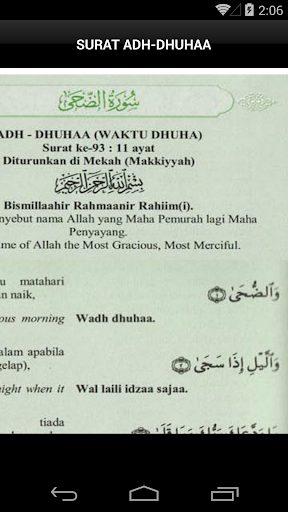 2:06
SURAT ADH-DHUHAA
سُورَةُ الضُّحَىٰ
ADH - DHUHAA (WAKTU DHUHA)
Surat ke-93 : 11 ayat
Diturunkan di Mekah (Makkiyyah)
بِسْمِ اللَّهِ الرَّحْمَٰنِ الرَّحِيمِ
Bismillaahir Rahmaanir Rahiim(i).
nyebut nama Allah yang Maha Pemurah lagi Maha
Penyayang.
me of Allah the Most Gracious, Most Merciful.
u matahari
n naik,
وَالضُّحَىٰ ١
ous morning Wadh dhuhaa.
alam apabila
elap),
وَاللَّيْلِ إِذَا سَجَىٰ ٢
night when it Wal laili idzaa sajaa.
tiada